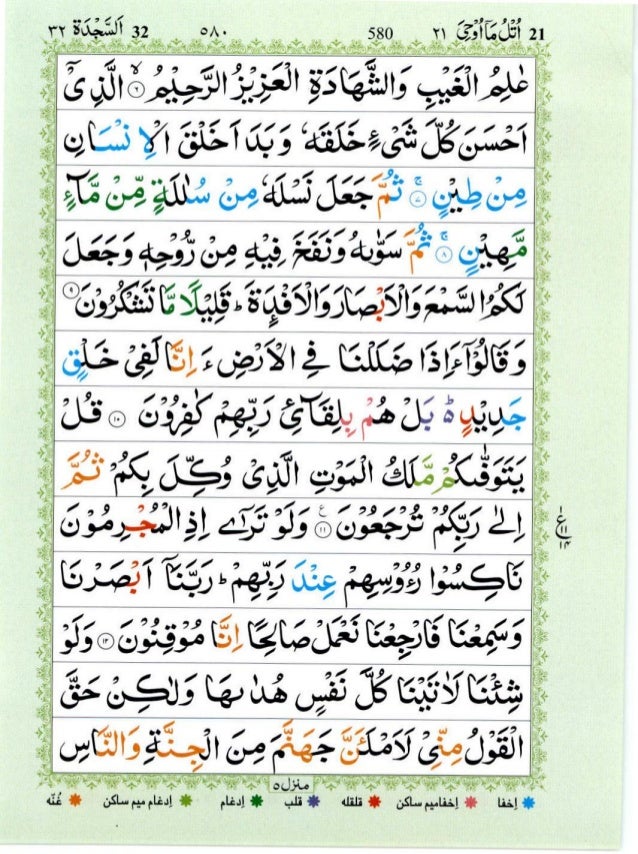 21 اُتْلُ مَاۤ اُوْحِیَ ۲۱ 580 ۵۸۰ 32 اَلسَّجْدَة ۳۲
عٰلِمُ الْغَیْبِ وَالشَّهَادَةِ الْعَزِیْزُ الرَّحِیْمُ ۙ۝۶ الَّذِیْۤ
اَحْسَنَ كُلَّ شَیْءٍ خَلَقَهٗ وَبَدَاَ خَلْقَ الْاِنْسَانِ
مِنْ طِیْنٍ ۚ۝۷ ثُمَّ جَعَلَ نَسْلَهٗ مِنْ سُلٰلَةٍ مِّنْ مَّآءٍ
مَّهِیْنٍ ۚ۝۸ ثُمَّ سَوّٰىهُ وَنَفَخَ فِیْهِ مِنْ رُّوْحِهٖ وَجَعَلَ
لَكُمُ السَّمْعَ وَالْاَبْصَارَ وَالْاَفْـِٕدَةَ ؕ قَلِیْلًا مَّا تَشْكُرُوْنَ ۝۹
وَقَالُوْۤا ءَاِذَا ضَلَلْنَا فِی الْاَرْضِ ءَاِنَّا لَفِیْ خَلْقٍ
جَدِیْدٍ ؕ۬ بَلْ هُمْ بِلِقَآئِ رَبِّهِمْ كٰفِرُوْنَ ۝۱۰ قُلْ
یَتَوَفّٰىكُمْ مَّلَكُ الْمَوْتِ الَّذِیْ وُكِّلَ بِكُمْ ثُمَّ
اِلٰی رَبِّكُمْ تُرْجَعُوْنَ ۝۱۱ وَلَوْ تَرٰۤی اِذِ الْمُجْرِمُوْنَ
ع ۱۱ ۱۴
نَاكِسُوْا رُءُوْسِهِمْ عِنْدَ رَبِّهِمْ ؕ رَبَّنَاۤ اَبْصَرْنَا
وَسَمِعْنَا فَارْجِعْنَا نَعْمَلْ صَالِحًا اِنَّا مُوْقِنُوْنَ ۝۱۲ وَلَوْ
شِئْنَا لَاٰتَیْنَا كُلَّ نَفْسٍ هُدٰىهَا وَلٰكِنْ حَقَّ
الْقَوْلُ مِنِّیْ لَاَمْلَـَٔنَّ جَهَنَّمَ مِنَ الْجِنَّةِ وَالنَّاسِ
منزل ۵
اِخفا اِخفامیم ساکن قلقله قلب اِدغام اِدغام میم ساکن غُنّه